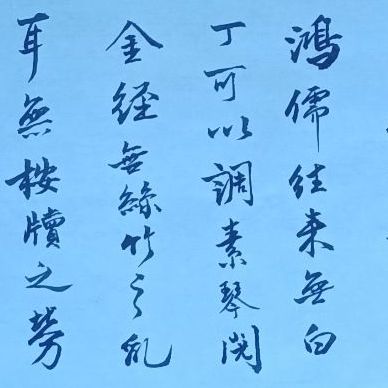 鴻儒往來無白
丁可以調素琴閱
金經無絲竹之亂
耳無桉牘之勞